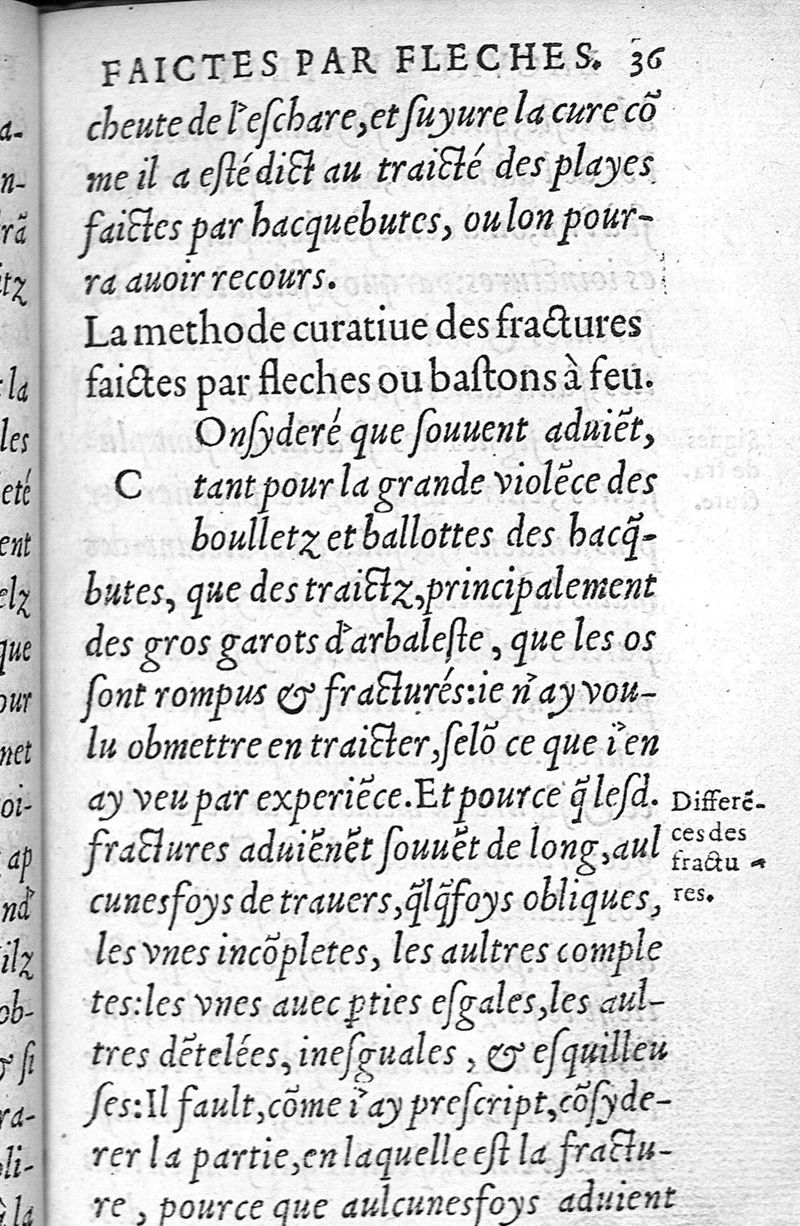 FAICTES PAR FLECHES. 36
cheute de l'eſchare, et ſuyure la cure cõ
me il a eſté dict au traicté des playes
faictes par hacquebutes, ou lon pour-
ra auoir recours.
La methode curatiue des fractures
faictes par fleches ou baſtons à feu.
COnſyderé que ſouuent aduiẽt,
tant pour la grande violẽce des
boulletz et ballottes des hacq̃-
butes, que des traictz, principalement
des gros garots d'arbaleſte, que les os
ſont rompus & fracturés: ie n'ay vou-
lu obmettre en traicter, ſelõ ce que i'en
ay veu par experiẽce. Et pource q̃ leſd.
fractures aduiẽnẽt ſouuẽt de long, aul
cunesfoys de trauers, q̃lq̃foys obliques,
les vnes incõpletes, les aultres comple
tes: les vnes auec ꝑties eſgales, les aul-
tres dẽtelées, ineſguales, & eſquilleu
ſes: Il fault, cõme i'ay preſcript, cõſyde-
rer la partie, en laquelle eſt la fractu-
re, pource que aulcunesfoys aduient
Differẽ-
ces des
fractu
res.
a-
n-
rã
itz
la
les
eté
ent
elz
que
our
net
oi-
ap
nd'
ilz
ob-
& ſi
ra-
li-
à la